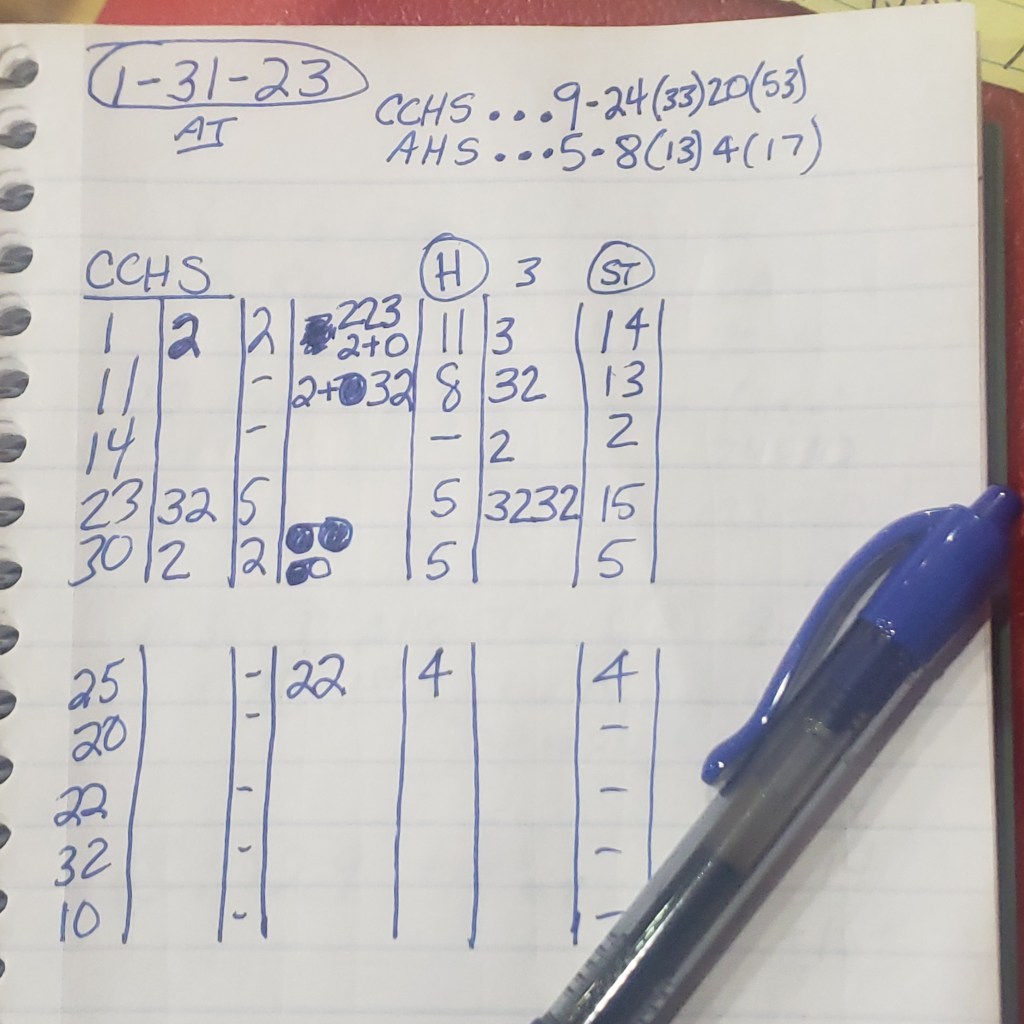 1-31-23
AT
CCHS ... 9-24(33)20(53)
AHS ... 5-8(13)4(17)
CCHS H 3 ST
1 2 2 223 2+0 11 3 14
11 - 2+ 32 8 32 13
14 - - 2 2
23 32 5 5 3232 15
30 2 2 0 5 5
25 - 22 4 4
20 - -
22 - -
32 - -
10 - -